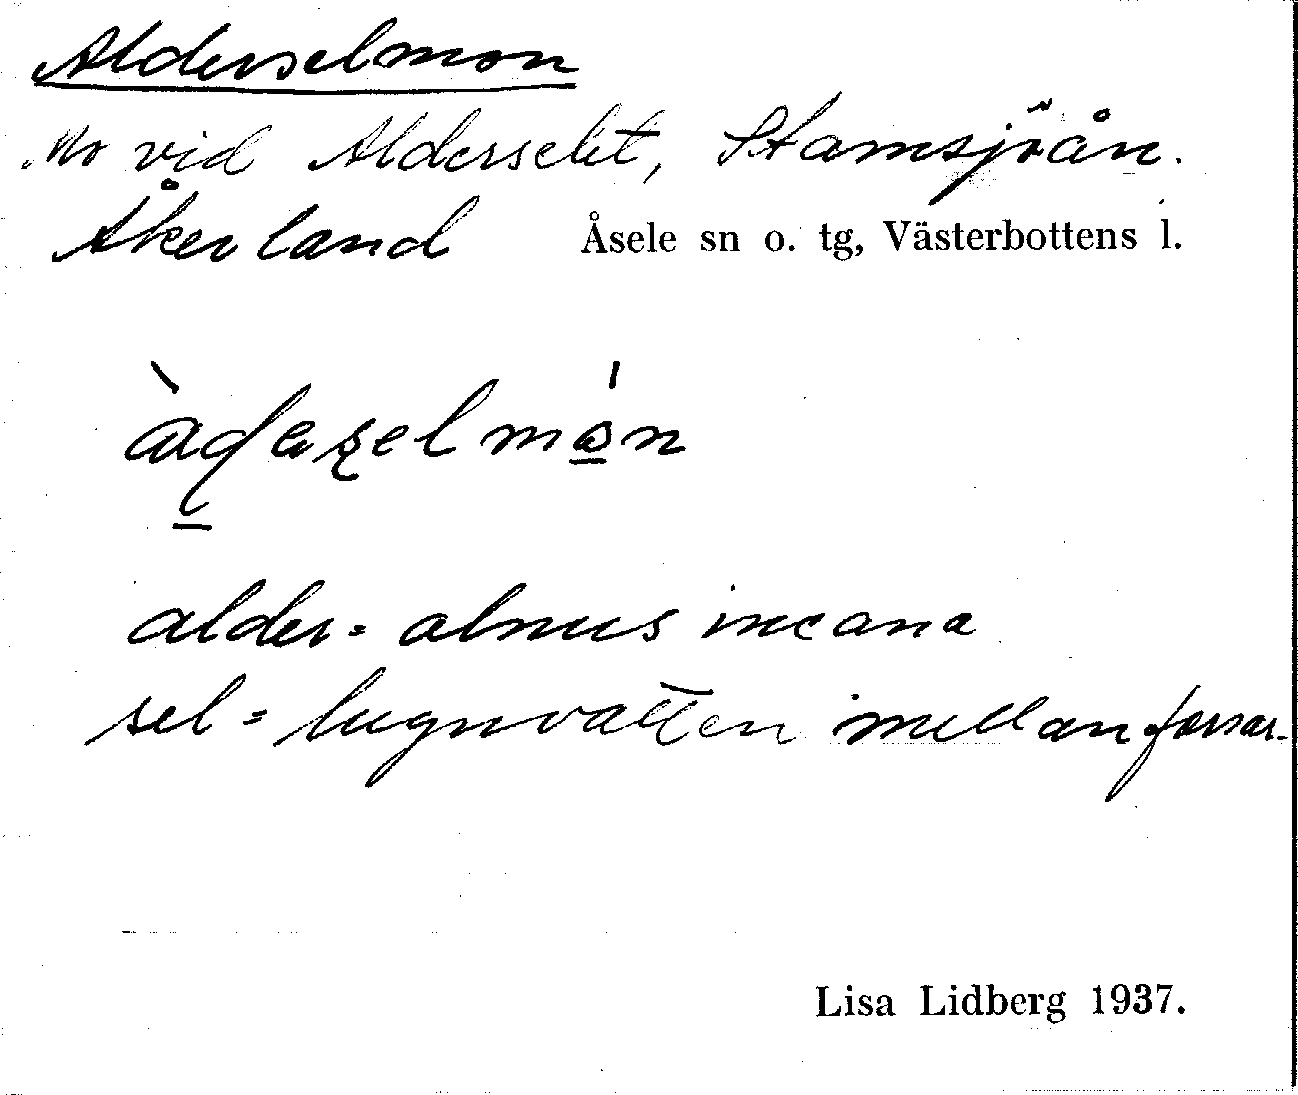 Alderselmon
Mo vid Alderselet, Stamsjöån.
Åkerland Åsele sn o. tg, Västerbottens l.
alder = alnus incana
sel = lugnvatten mellan forsar.
Lisa Lidberg 1937.